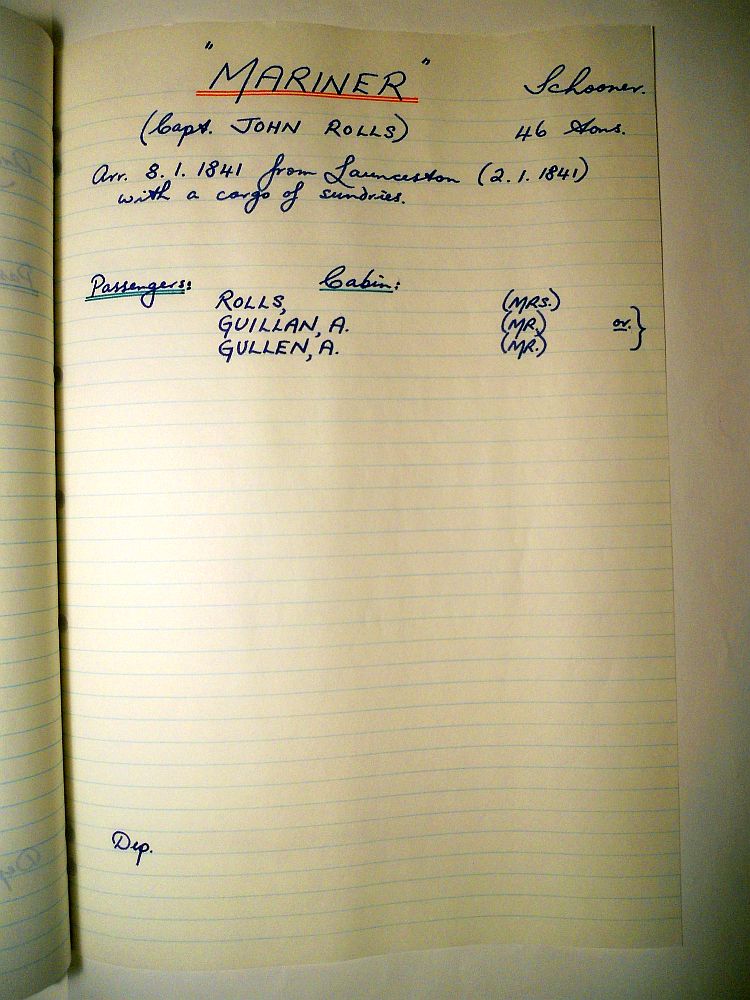 "MARINER" Schooner.
(Capt. JOHN ROLLS) 46 tons.
Arr. 8.1.1841 from Launceston (2.1.1841)
with a cargo of sundries.
Passengers: Cabin:
ROLLS, (MRS.)
GUILLAN, A. (MR.) or }
GULLEN, A. (MR.)
Dep.